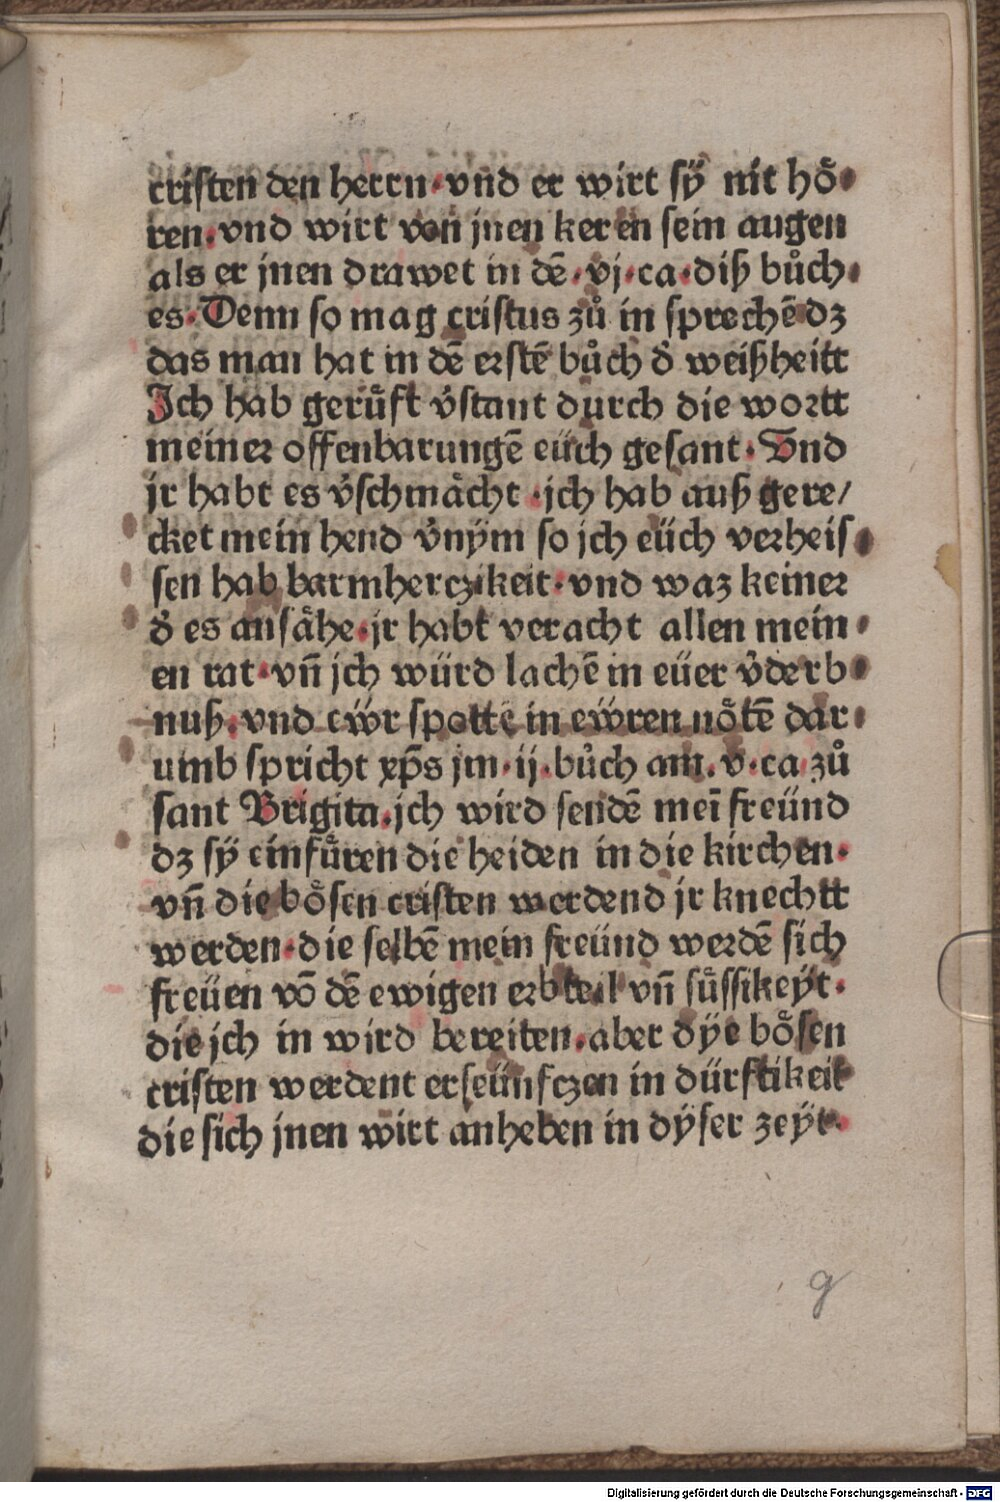 cristen den herrn·vnd er wirt sÿ nit hoͤ·
ren.vnd wirt von jnen keren sein augen
als er jnen drawet in dē·vj·ca·diß buͦch·
es·Denn so mag cristus zuͦ in sprechē dz
das man hat in dē erstē buͦch d̓ weißheitt
Jch hab geruͤft v̓stant durch die wortt
meiner offenbarungē eüch gesant·Vnd
jr habt es v̓schmaͤcht·jch hab auß gere/
cket mein hend v̓nÿm so jch eüch verheis·
sen hab barmherczikeit·vnd waz keiner
d̓ es ansaͤhe·jr habt veracht allen mein·
en rat·vn̄ jch würd lachē in eüer v̓derb·
nuß.vnd eẅr spottē in eẅren noͤtē dar·
umb spricht xp̄s jm·ij·buͦch am.v·ca zuͦ
sant Brigita.jch wird sendē mei̅ freünd
dz sÿ einfuͤren die heiden in die kirchen·
vn̄ die boͤsen cristen werdend jr knechtt
werden·die selbē mein freünd werdē sich
freüen vō dē ewigen erbteil vn̄ suͤssikeyt·
die jch in wird bereiten.aber dÿe boͤsen
cristen werdent erseünfczen in dürftikeit
die sich jnen wirt anheben in dÿser zeÿt·
g
Digitalisierung gefördert durch die Deutsche Forschungsgemeinschaft - DFG